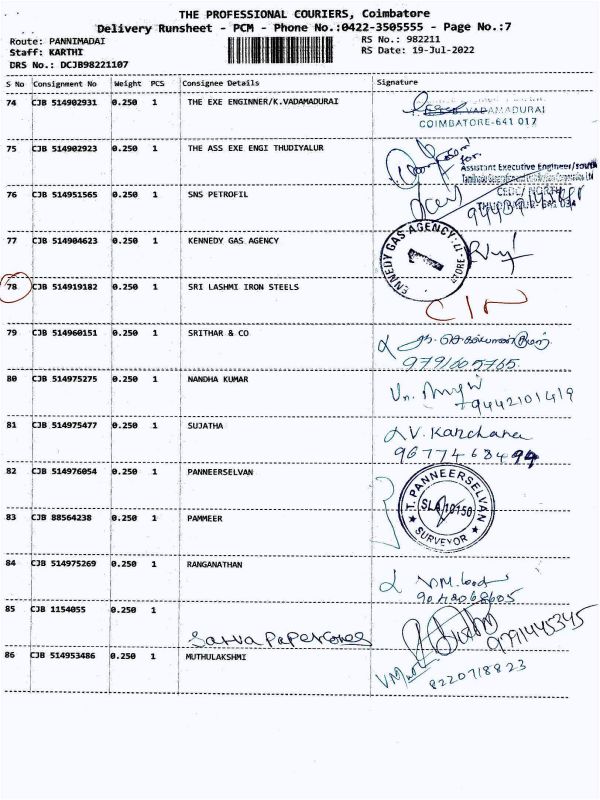 THE PROFESSIONAL COURIERS, Coimbatore
Delivery Runsheet - PCM - Phone No.:0422-3505555 - Page No.:7
Route: PANNIMADAI RS No.: 982211
Staff: KARTHI RS Date: 19-Jul-2022
DRS No.: DCJB98221107
S No Consignment No Weight PCS Consignee Details Signature
74 CJB 514902931 0.250 1 THE EXE ENGINNER/K.VADAMADURAI
VADAMADURAI
COIMBATORE-641 017
75 CJB 514902923 0.250 1 THE ASS EXE ENGI THUDIYALUR
for
Assistant Executive Engineer/south
76 CJB 514951565 0.250 1 SNS PETROFIL
77 CJB 514904623 0.250 1 KENNEDY GAS AGENCY
78 CJB 514919182 0.250 1 SRI LASHMI IRON STEELS
79 CJB 514960151 0.250 1 SRITHAR & CO
9791605765
80 CJB 514975275 0.250 1 NANDHA KUMAR
9442101419
81 CJB 514975477 0.250 1 SUJATHA
V. Kanchana
9677468499
82 CJB 514976054 0.250 1 PANNEERSELVAN
T. PANNEERSELVAN
SLA/10150
SURVEYOR
83 CJB 88564238 0.250 1 PAMMEER
84 CJB 514975269 0.250 1 RANGANATHAN
85 CJB 1154055 0.250 1
Satva Paper Cones
9791445345
86 CJB 514953486 0.250 1 MUTHULAKSHMI
8220718823